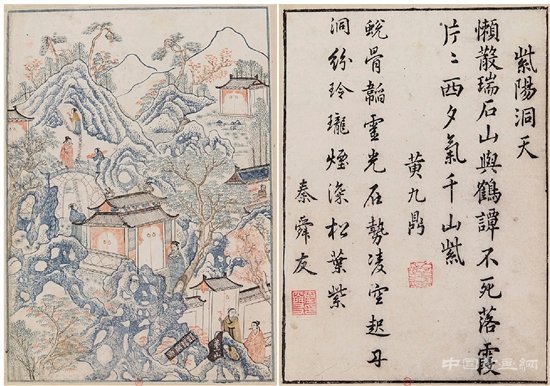 紫陽洞天
懶散瑞石山與鶴譚不死落霞
片〻西夕氣千山紫
黄九鼎
蛻骨韜靈光石勢凌空起丹
洞紛玲瓏煙深松葉紫
秦舜友